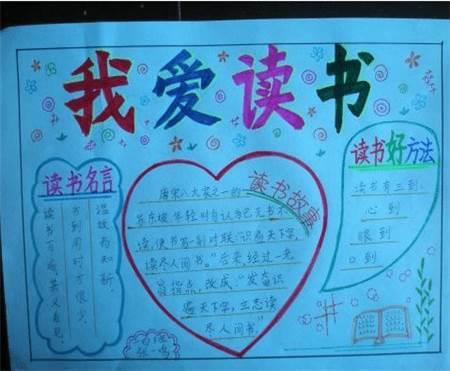 我爱读书
读书名言
温故而知新。
书到用时方恨少
读书百遍其义自见。
读书故事
唐宋八大家之一的
苏东坡年轻时自认为已无书不
读,便书写一副对联"识遍天下字,
读尽人间书。"后来经过一老
者指点,改成:"发奋识
遍天下字,立志读
尽人间书"
读书好方法
读书有三到:
心到
眼到
口到